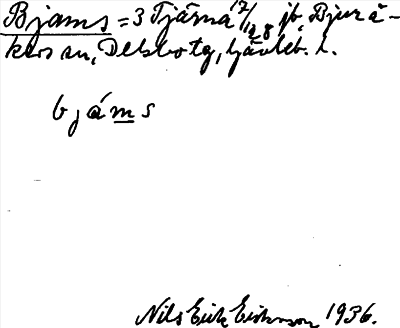 Bjams = 3 Tjärna 17/12 8 jb, Bjurå-
kers sn, Delsbo tg, Gävleb. l.
bjáms
Nils Erik Eriksson 1936.